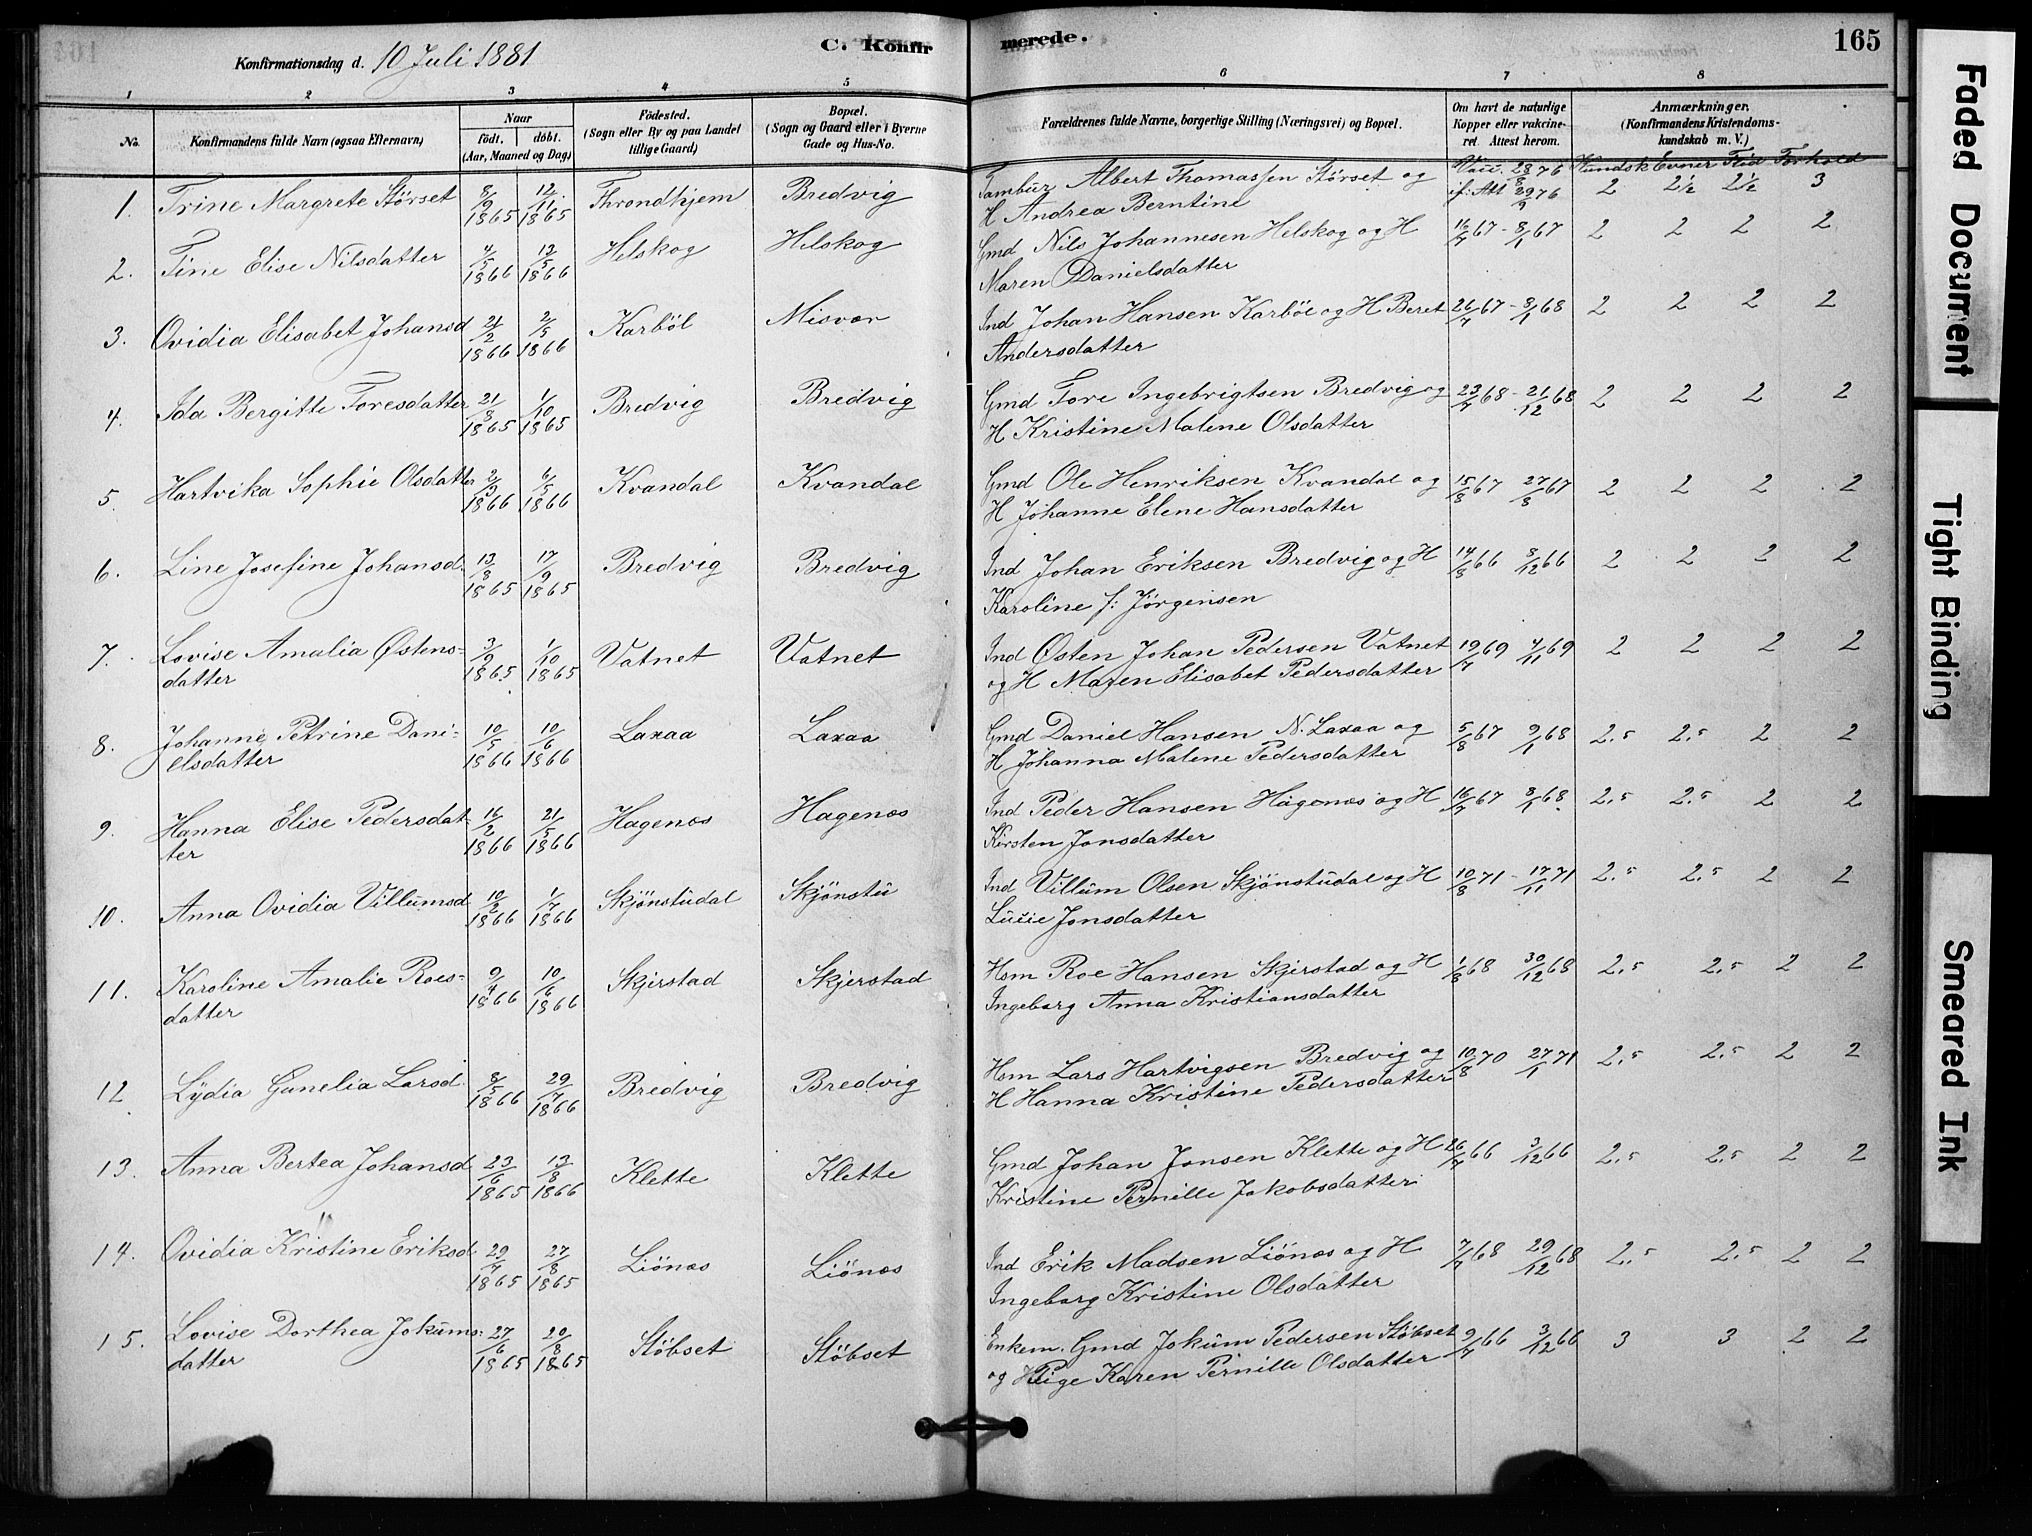 Konfirmationsdag d. 10 Juli 1881
C. Konfirmerede.
165
1 2 3 4 5 6 7 8
No.
Konfirmandens fulde Navn (ogsaa Efternavn)
Naar
födt. döbt.
(Aar, Maaned og Dag)
Födested.
(Sogn eller By og paa Landet
tillige Gaard)
Bopæl.
(Sogn og Gaard eller i Byerne
Gade og Hus-No.
Forældrenes fulde Navne, borgerlige Stilling (Næringsvei) og Bopæl.
Om havt de naturlige
Kopper eller vakcine-
ret Attest herom.
Anmærkninger.
(Konfirmandens Kristendoms-
kundskab m. V.)
Kundsk Evner Flid Forhold
1. Trine Margrete Störset 8/9 1865 12/11 1865 Throndhjem Bredvig Tambur Albert Thomassen Störset og Vacc. 28/8 76 2 2½ 2½ 3
H Andrea Berntine if: Att 29/9 76
2. Tine Elise Nilsdatter 4/5 1866 12/5 1866 Helskog Helskog Gmd Nils Johannesen Helskog og H 16/7 67 - 8/1 67 2 2 2 2
Maren Danielsdatter
3. Ovidia Elisabet Johansd 21/2 1866 2/5 1866 Karböl Misvær Ind Johan Hansen Karböl og H Beret 26/7 67 - 8/1 68 2 2 2 2
Andersdatter
4. Ida Bergitte Toresdatter 21/8 1865 1/10 1865 Bredvig Bredvig Gmd Tore Ingebrigtsen Bredvig og 23/7 68 - 21/12 68 2 2 2 2
H Kristine Malene Olsdatter
5. Hartvika Sophie Olsdatter 1866 6/5 1866 Kvandal Kvandal Gmd Ole Henriksen Kvandal og 15/8 67 27/8 67 2 2 2 2
H Johanne Elene Hansdatter
6. Line Josefine Johansd. 13/8 1865 17/9 1865 Bredvig Bredvig Ind Johan Eriksen Bredvig og H 14/8 66 8/12 66 2 2 2 2
Karoline f: Jörgensen
7. Lovise Amalia Østens- 3/9 1865 1/10 1865 Vatnet Vatnet Ind Østen Johan Pedersen Vatnet 19/7 69 4/11 69 2 2 2 2
datter og H Maren Elisabet Pedersdatter
8. Johanne Petrine Dani- 10/5 1866 10/6 1866 Laxaa Laxaa Gmd Daniel Hansen N. Laxaa og 5/8 67 9/1 68 2.5 2.5 2 2
elsdatter H Johanna Malene Pedersdatter
9. Hanna Elise Pedersdat- 16/2 1866 21/5 1866 Hagenæs Hagenæs Ind Peder Hansen Hagenæs og H 16/7 67 8/1 68 2.5 2.5 2 2
ter Kirsten Jonsdatter
10. Anna Ovidia Villumsd 10/2 1866 1/7 1866 Skjönstudal Skjönstu Ind Villum Olsen Skjönstudal og H 10/8 71 - 17/11 71 2.5 2.5 2 2
Lucie Jonsdatter
11. Karoline Amalie Roes- 9/4 1866 10/6 1866 Skjerstad Skjerstad Hsm Roe Hansen Skjerstad og H 1/8 68 30/12 68 2.5 2.5 2 2
datter Ingeborg Anna Kristiansdatter
12 Lydia Gunelia Larsd. 8/5 1866 29/7 1866 Bredvig Bredvig Hsm Lars Hartvigsen Bredvig og 10/8 70 27/1 71 2.5 2.5 2 2
H Hanna Kristine Pedersdatter
13. Anna Bertea Johansd 23/6 1865 13/8 1866 Klette Klette Gmd Johan Jonsen Klette og H 26/7 66 3/12 66 2.5 2.5 2 2
Kristine Pernille Jakobsdatter
14. Ovidia Kristine Eriksd 29/7 1865 27/8 1865 Liönæs Liönæs Ind Erik Madsen Liönæs og H 7/7 68 29/12 68 2.5 2.5 2 2
Ingeborg Kristine Olsdatter
15. Lovise Dorthea Jokums- 27/6 1865 20/8 1865 Stöbset Stöbset Enkem. Gmd Jokum Pedersen Stöbset 9/7 66 3/12 66 3 3 2 2
datter og Pige Karen Pernille Olsdatter
Faded Document
Tight Binding
Smeared Ink